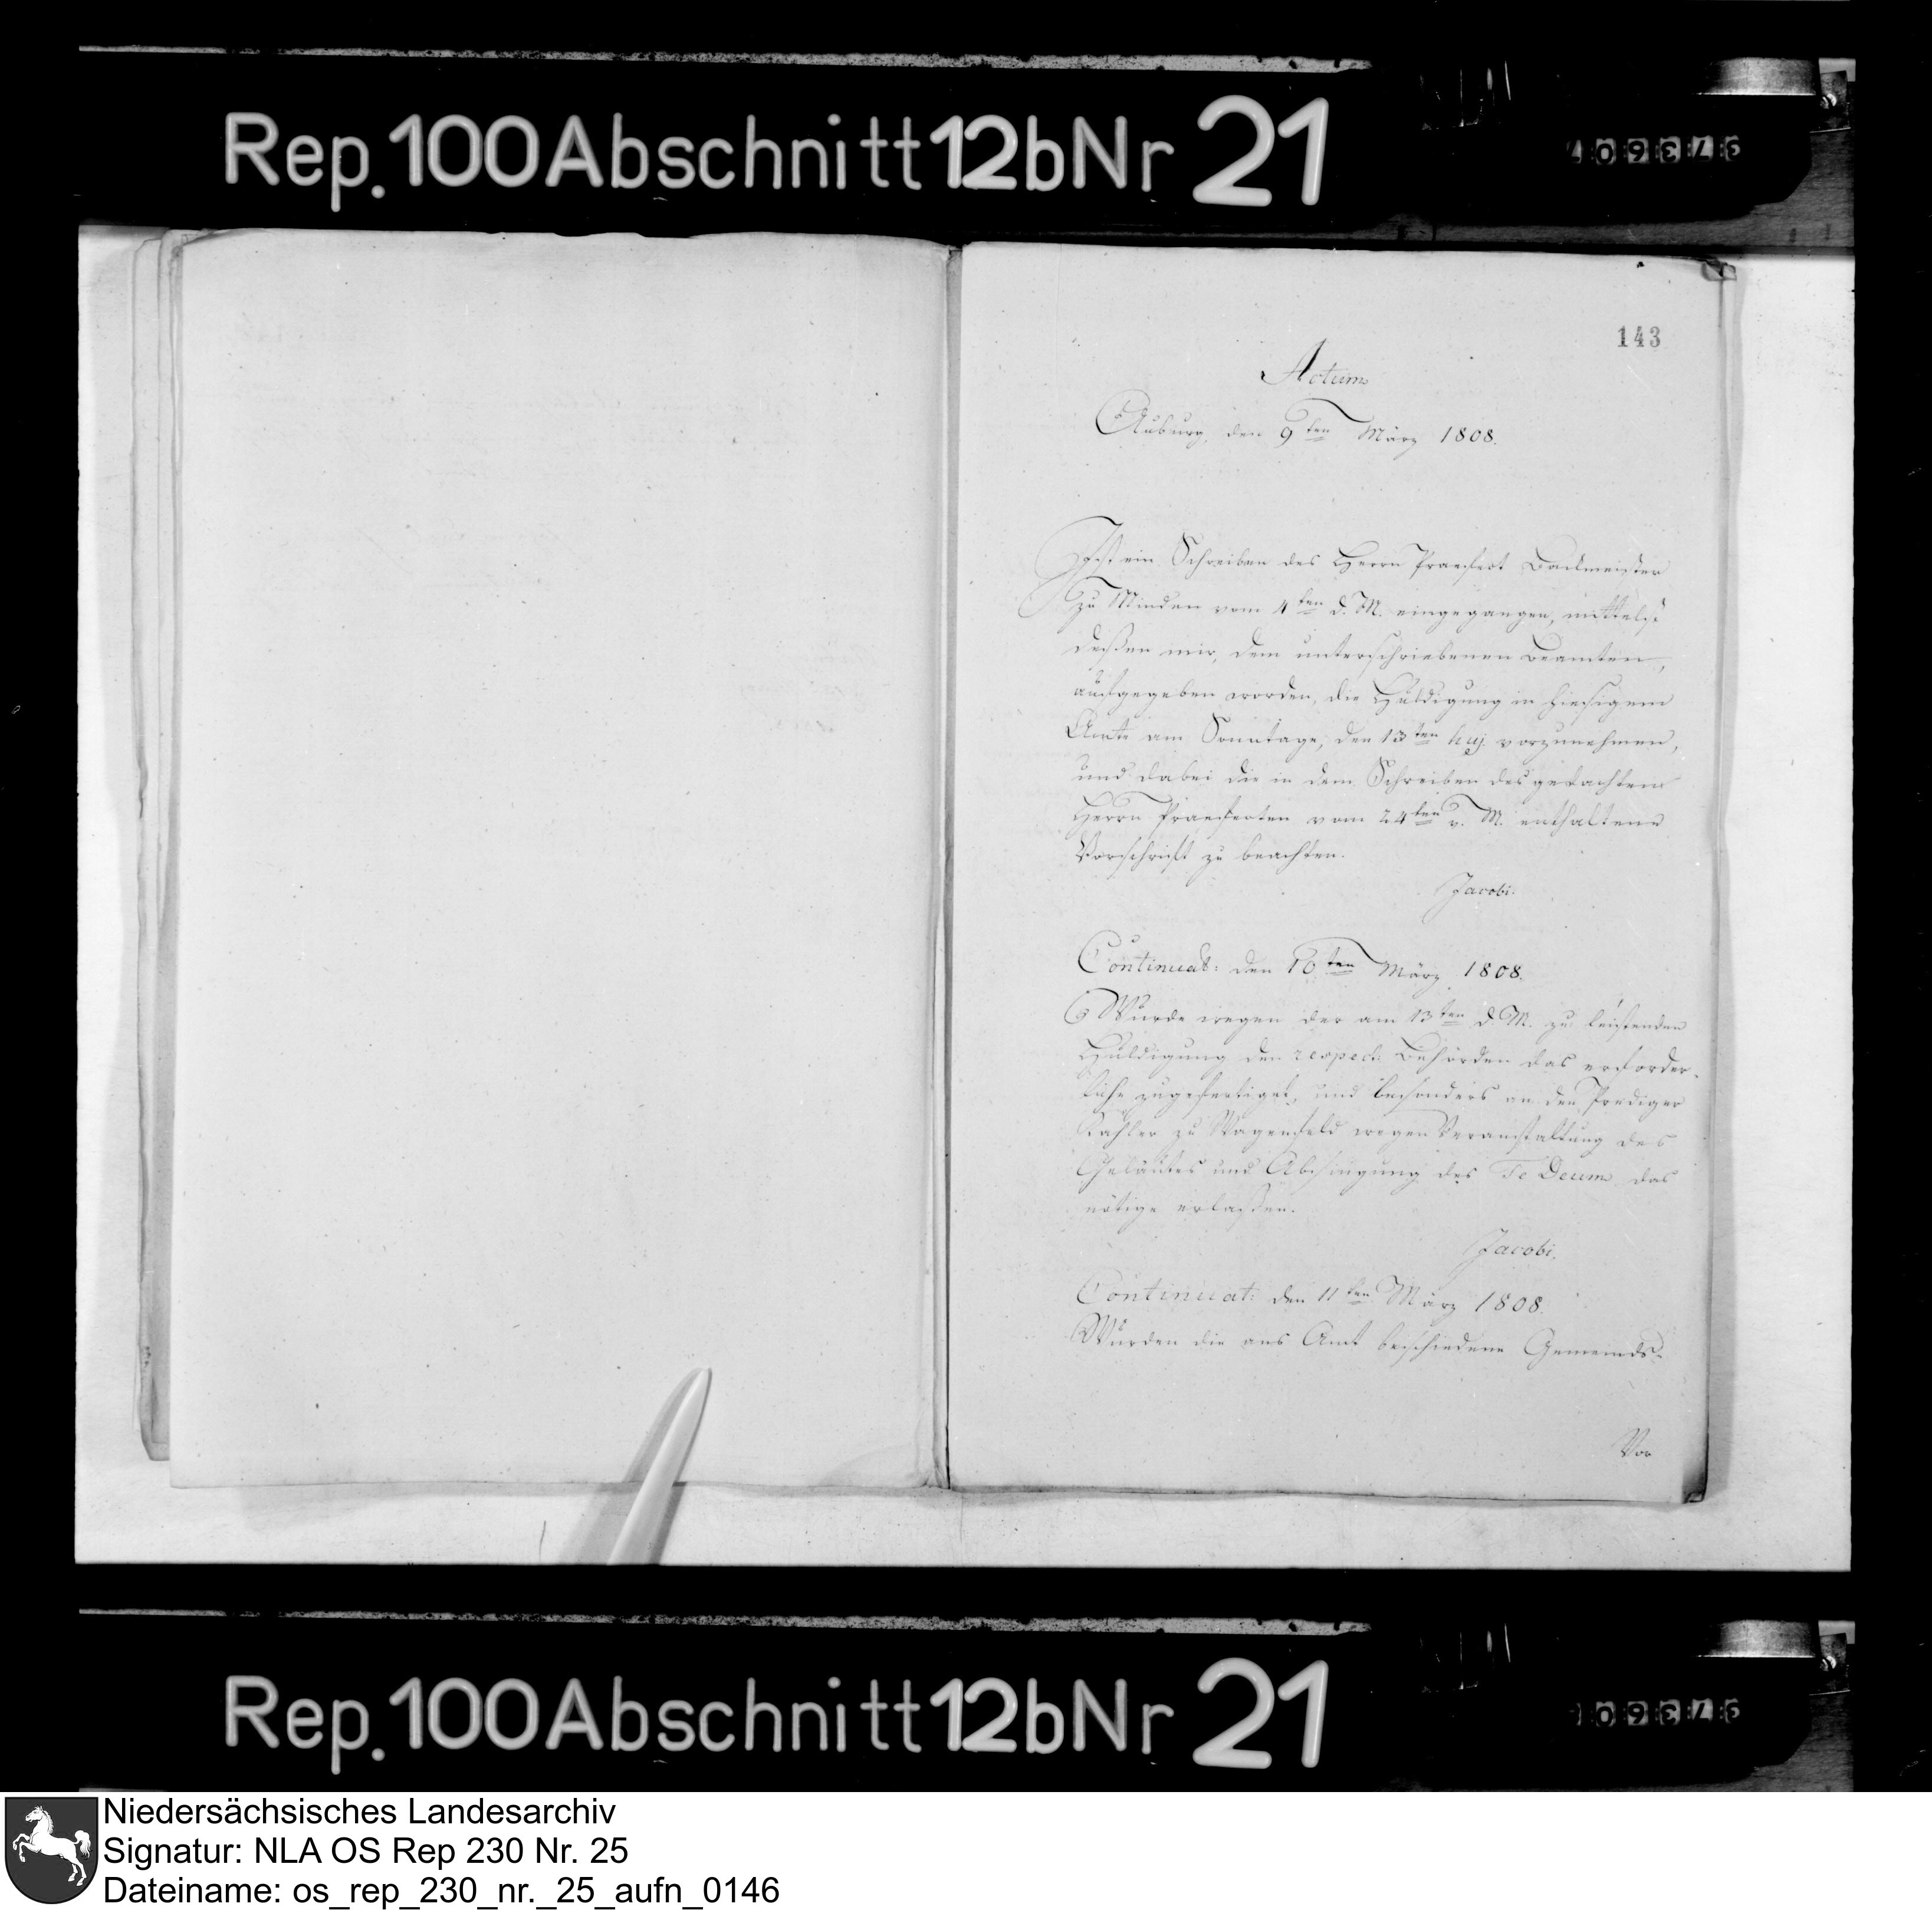 Rep.100Abschnitt12bNr 21
143
Actum
Auburg, den 9ten März 1808.
Ist ein Schreiben des Herrn Praefect Bacmeister
zu Minden vom 4ten d. M. eingegangen, mittelst
deßen mir, dem unterschriebenen Beamten,
aufgegeben worden, die Huldigung in hiesigem
Amte am Sonntage, den 13ten huj. vorzunehmen,
und dabei die in dem Schreiben des gedachten
Herrn Praefecten vom 24ten v. M. enthaltene
Vorschrift zu beachten.
Jacobi.
Continuat: den 10ten März 1808.
Wurde wegen der am 13ten d. M. zu leistenden
Huldigung den respect: Behörden das erforder-
liche zugefertiget, und besonders an den Prediger
Kahler zu Wagenfeld wegen Veranstaltung des
Geläutes und Absingung des Te Deum das
nötige erlaßen.
Jacobi.
Continuat: den 11ten März 1808.
Wurden die ans Amt beschiedene Gemeinds-
Vor
Rep.100Abschnitt12bNr 21
Niedersächsisches Landesarchiv
Signatur: NLA OS Rep 230 Nr. 25
Dateiname: os_rep_230_nr._25_aufn_0146